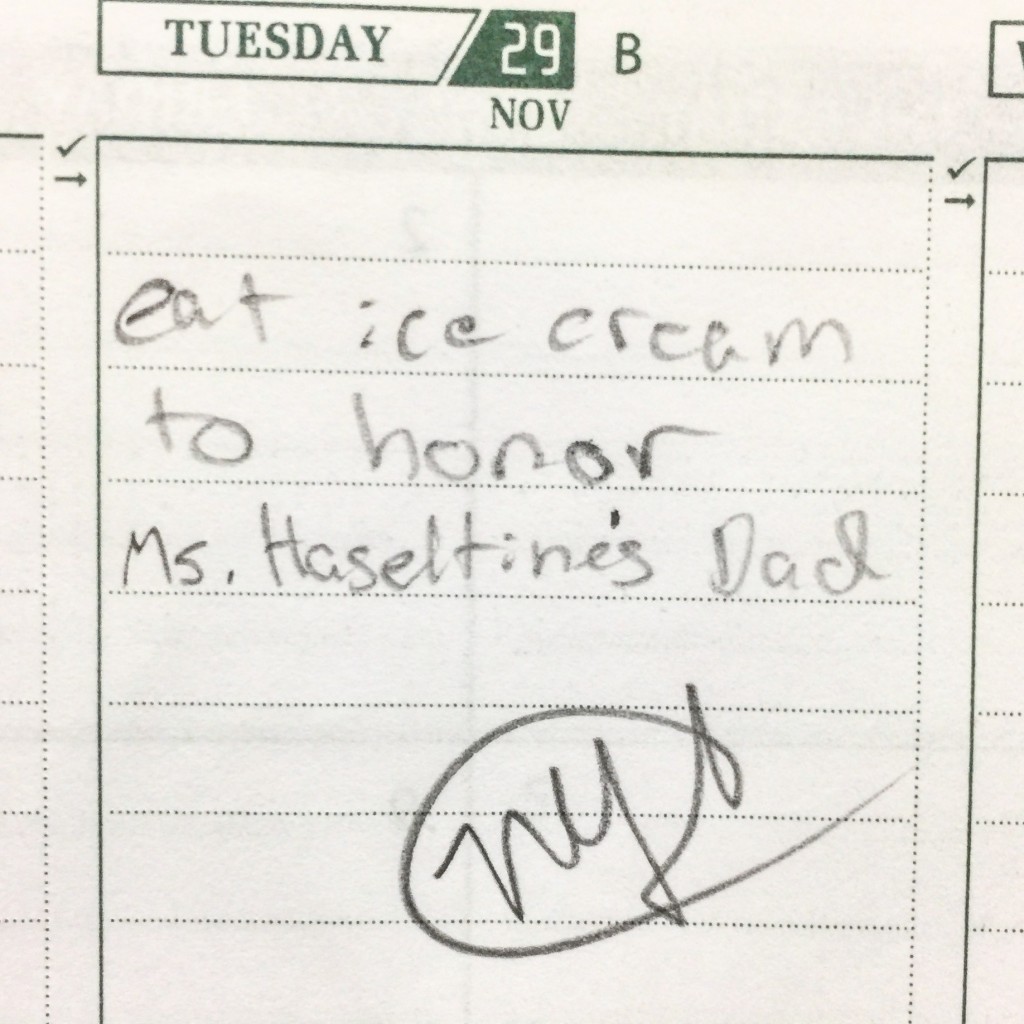 TUESDAY 29 B
NOV
eat ice cream
to honor
Ms. Haseltine's Dad